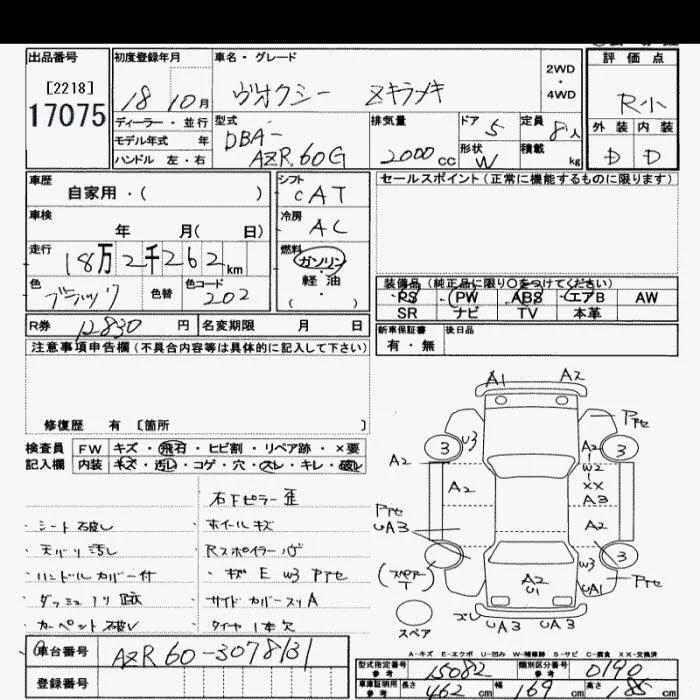 出品番号
[2218]
17075
初度登録年月
18 10月
ディーラー・並行
モデル年式 年
ハンドル 左・右
車名・グレード
ヴォクシー Zキラメキ
2WD
・
4WD
型式
DBA-
AZR60G
排気量
2000cc
ドア
5
形状
W
定員
8人
積載
kg
評価点
R小
外装 内装
D D
車歴
自家用・( )
車検
年 月( 日)
走行
18万2千262km
色
ブラック
色替
色コード
202
シフト
CAT
冷房
AC
燃料
ガソリン
・
軽・油
・
( )
セールスポイント(正常に機能するものに限ります)
装備品(純正品に限り○をつけてください)
PS PW ABS エアB AW
SR ナビ TV 本革
R券 12830円
名変期限 月 日
新車保証書
有・無
後日品
注意事項申告欄(不具合内容等は具体的に記入して下さい)
修復歴 有 [箇所
検査員
記入欄
FW キズ・飛石・ヒビ割・リペア跡・×要
内装 キズ・汚レ・コゲ・穴・スレ・キレ・破レ
・シート破レ
・天バリ汚レ
・ハンドルカバー付
・ダッシュノリ跡
・カーペット破レ
右Fピラー歪
ホイールキズ
Rスポイラー
・キズ E W3 Pアセ
サイドカバースリA
タイヤ1本欠
A1 A2
Pアセ
3 U3
3
A2
A2
A2
W2
XX
A3
A2
Pアセ
UA3
3
3
W3
(スペアー
T)
A2
U1
UA1
Pアセ
ズレ UA3 UA3
スペア
A-キズ E-エクボ U-凹み W-補修跡 S-サビ C-腐食 XX-交換済
車台番号
AZR60-3078131
登録番号
型式指定番号
参考
15082
類別区分番号
参考
0190
車庫証明用
参考
長さ 462cm 幅 169cm 高さ 85cm